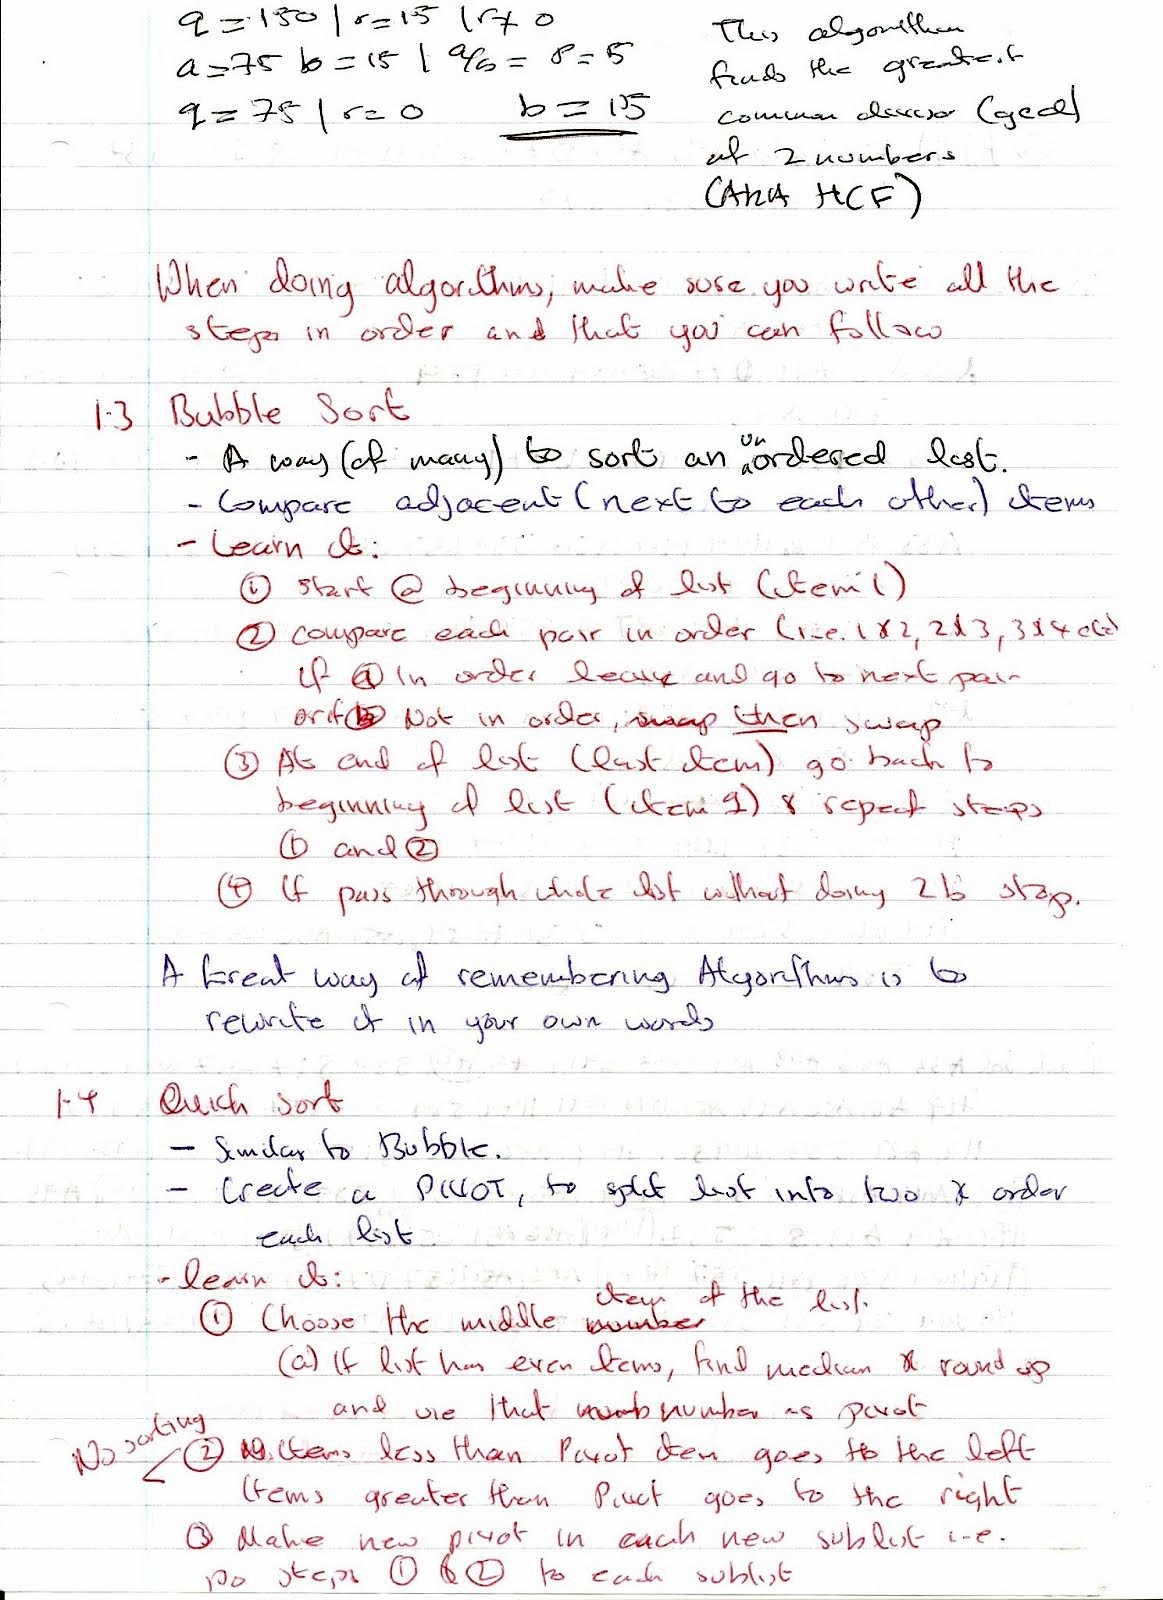 q = 150 | r = 15 | r ≠ 0
a = 75 b = 15 | a/b = 5 = 5
q = 75 | r = 0 b = 15
This algorithm
finds the greatest
common divisor (gcd)
of 2 numbers
(AKA HCF)
When doing algorithms, make sure you write all the
steps in order and that you can follow
1.3 Bubble Sort
- A way (of many) to sort an unordered list.
- Compare adjacent (next to each other) items
- Learn it:
① start @ beginning of list (item 1)
② compare each pair in order (i.e. 1&2, 2&3, 3&4 etc)
if ⓐ in order leave and go to next pair
or if ⓑ Not in order, swap then swap
③ At end of list (last item) go back to
beginning of list (item 1) & repeat steps
① and ②
④ If pass through whole list without doing 2b stop.
A Great way of remembering Algorithms is to
rewrite it in your own words
1.4 Quick sort
- Similar to Bubble.
- Create a PIVOT, to split list into two & order
each list
- learn it:
① Choose the middle number item of the list.
(a) If list has even items, find median & round up
and use that numb number as pivot
No sorting
② items less than Pivot item goes to the left
Items greater then Pivot goes to the right
③ Make new pivot in each new sublist i.e.
Do steps ① & ② to each sublist